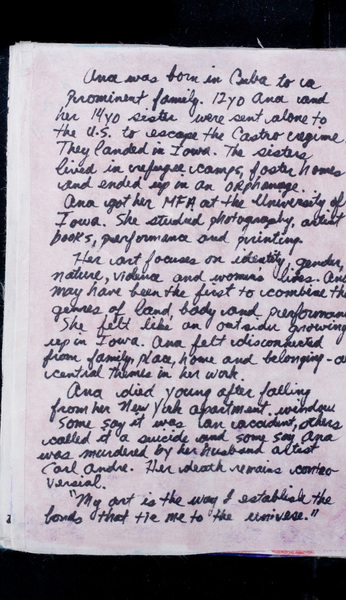 Ana was born in Cuba to a
prominent family. 12yo Ana and
her 14yo sister were sent alone to
the U.S. to escape the Castro regime.
They landed in Iowa. The sisters
lived in refugee camps, foster homes
and ended up in an orphanage.
Ana got her MFA at the University of
Iowa. She studied photography, artist
books, performance and printing.
Her art focuses on identity, gender,
nature, violence and women's lives. Ana
may have been the first to combine the
genres of land, body and performan
She felt like an outsider growing
up in Iowa. Ana felt disconnected
from family, place, home and belonging - a
central themes in her work.
Ana died young after falling
from her New York apartment window
Some say it was an accident, others
called it a suicide and some say Ana
was murdered by her husband artist
Carl Andre. Her death remains contro-
versial.
"My art is the way I establish the
bonds that tie me to the universe."